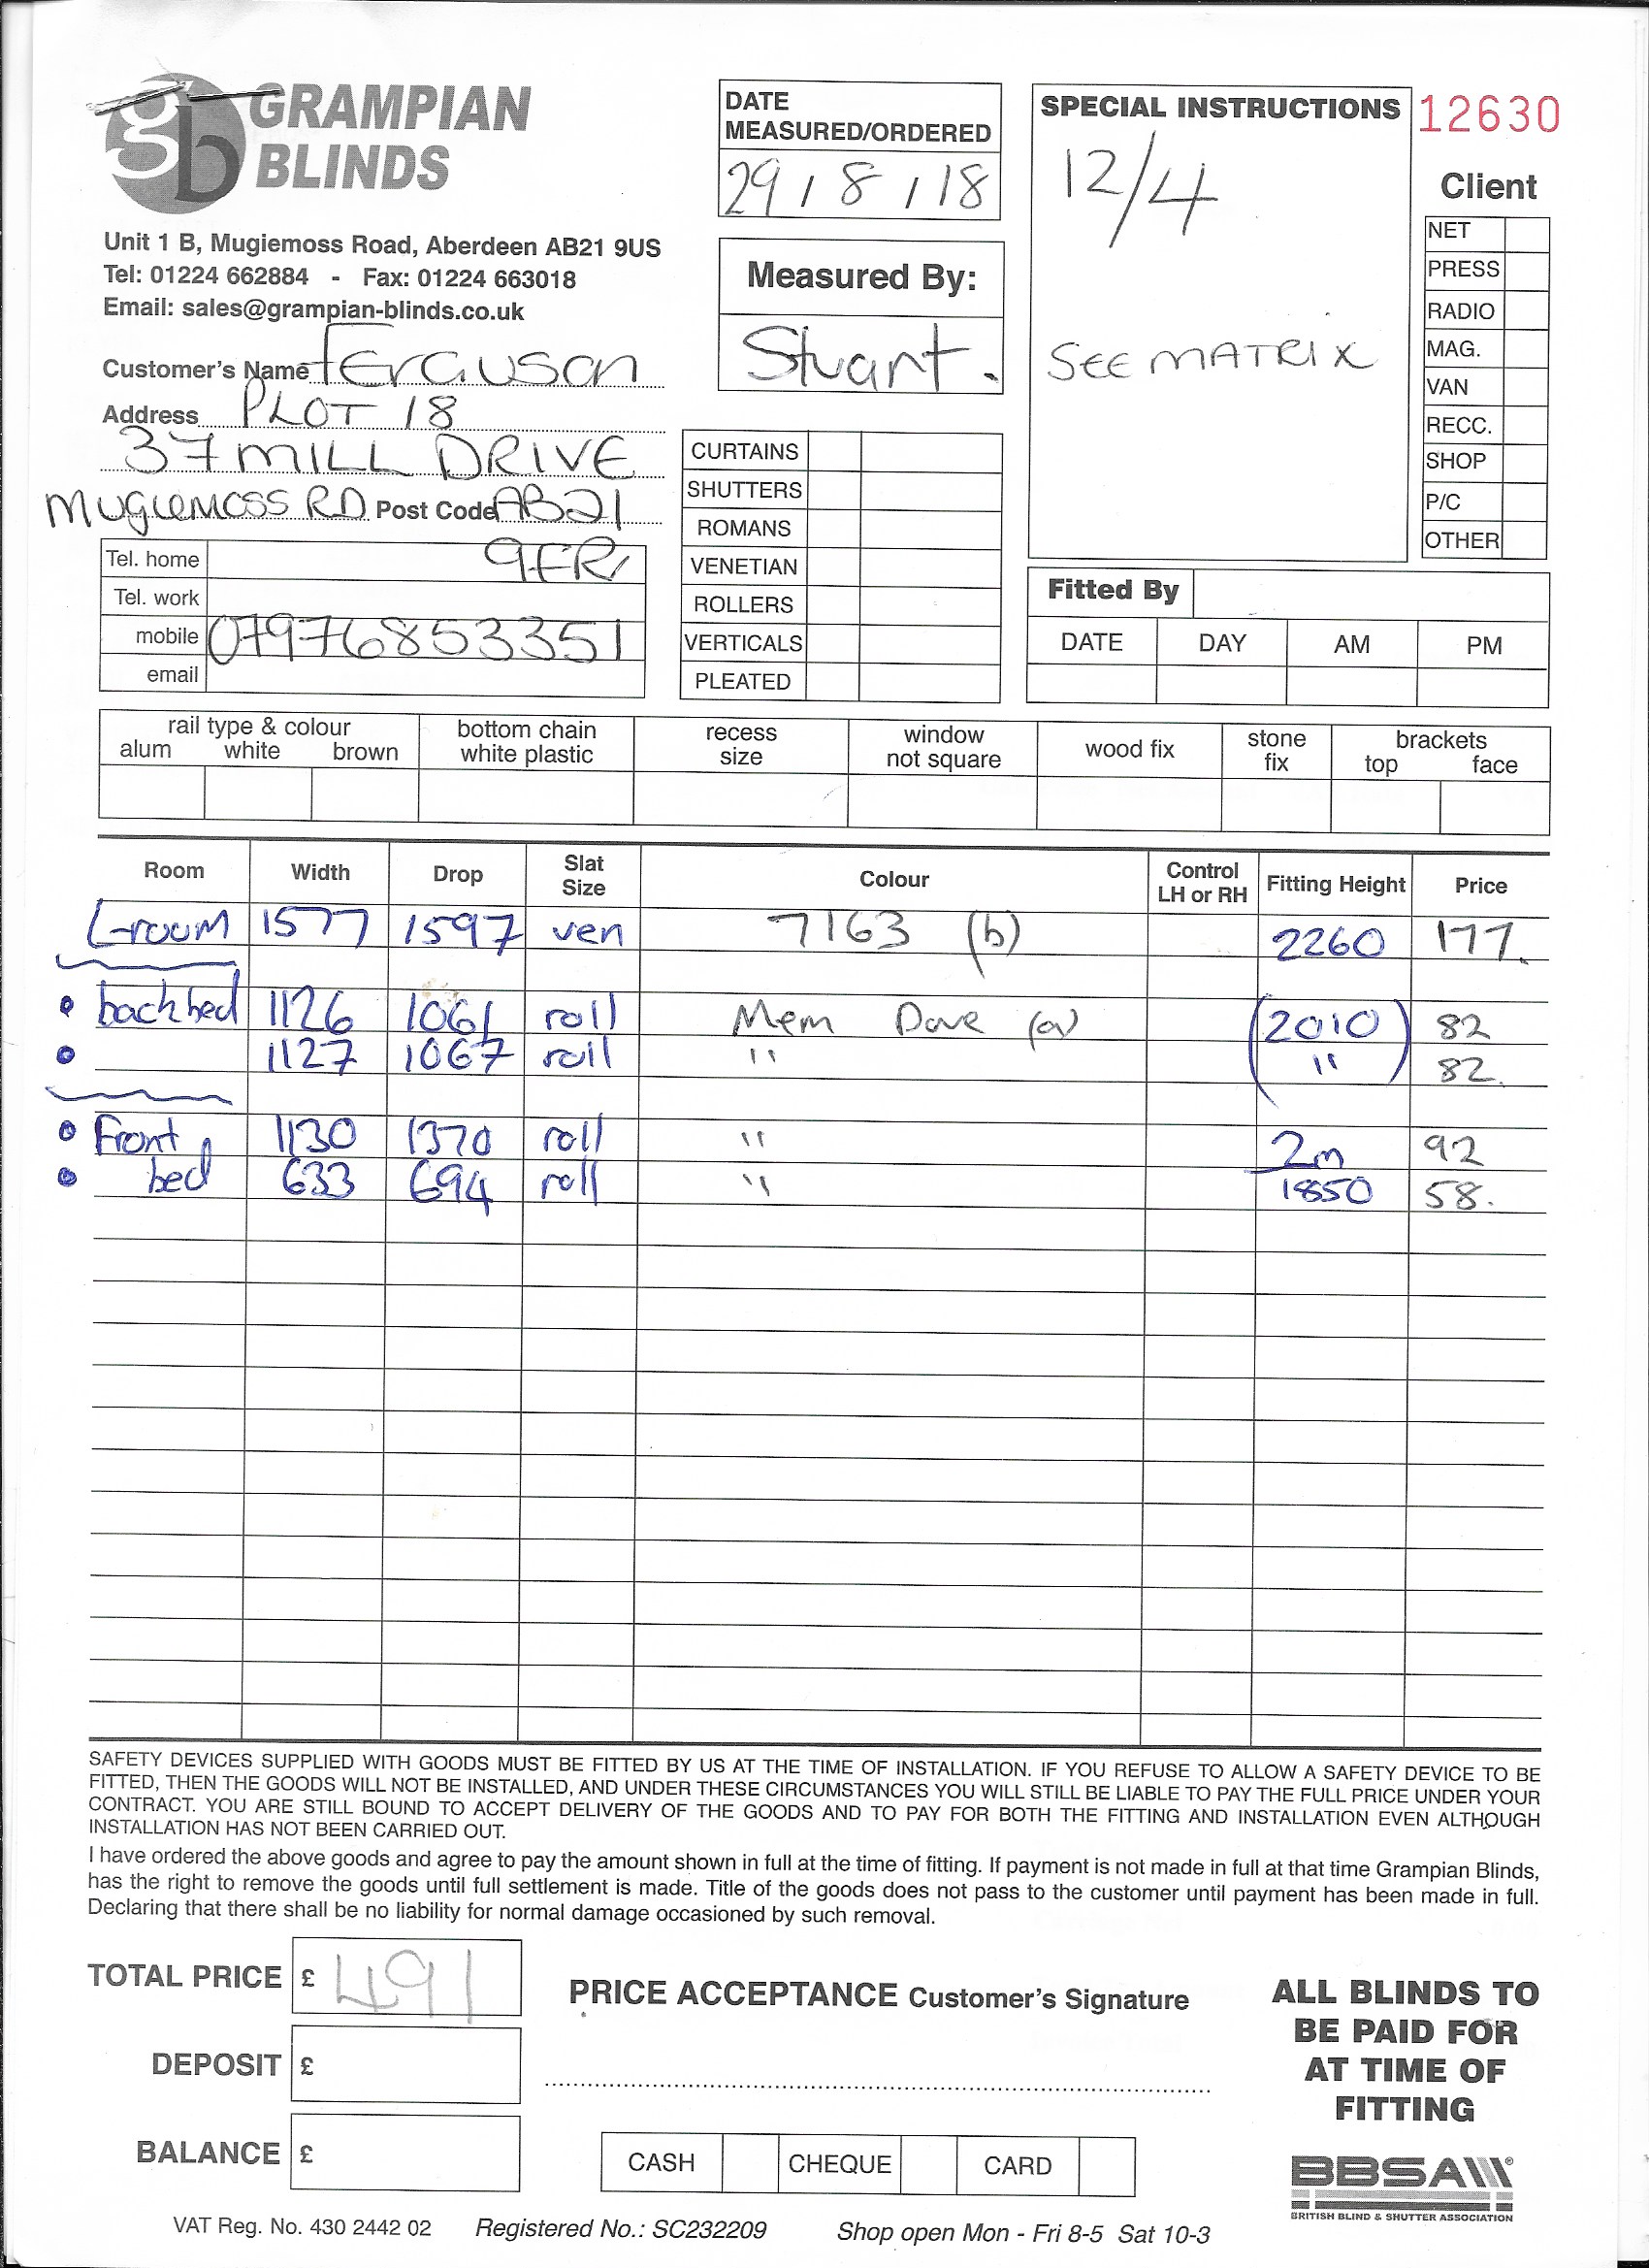 gb GRAMPIAN
BLINDS
Unit 1 B, Mugiemoss Road, Aberdeen AB21 9US
Tel: 01224 662884 - Fax: 01224 663018
Email: sales@grampian-blinds.co.uk
Customer's Name Ferguson
Address PLOT 18
37 MILL DRIVE
MUGIEMOSS RD Post Code AB21
9FR
Tel. home
Tel. work
mobile 07976853351
email
DATE
MEASURED/ORDERED
29 / 8 / 18
Measured By:
Stuart.
CURTAINS
SHUTTERS
ROMANS
VENETIAN
ROLLERS
VERTICALS
PLEATED
SPECIAL INSTRUCTIONS
12/4
SEE MATRIX
12630
Client
NET
PRESS
RADIO
MAG.
VAN
RECC.
SHOP
P/C
OTHER
Fitted By
DATE DAY AM PM
rail type & colour bottom chain recess window wood fix stone brackets
alum white brown white plastic size not square fix top face
Room Width Drop Slat Size Colour Control LH or RH Fitting Height Price
L-room 1577 1597 ven 7163 (b) 2260 177.
• back bed 1126 1061 roll Mem Dove (a) (2010) 82
• 1127 1067 roll " " 82.
• Front 1130 1370 roll " 2m 92
• bed 633 694 roll " 1850 58.
SAFETY DEVICES SUPPLIED WITH GOODS MUST BE FITTED BY US AT THE TIME OF INSTALLATION. IF YOU REFUSE TO ALLOW A SAFETY DEVICE TO BE
FITTED, THEN THE GOODS WILL NOT BE INSTALLED, AND UNDER THESE CIRCUMSTANCES YOU WILL STILL BE LIABLE TO PAY THE FULL PRICE UNDER YOUR
CONTRACT. YOU ARE STILL BOUND TO ACCEPT DELIVERY OF THE GOODS AND TO PAY FOR BOTH THE FITTING AND INSTALLATION EVEN ALTHOUGH
INSTALLATION HAS NOT BEEN CARRIED OUT.
I have ordered the above goods and agree to pay the amount shown in full at the time of fitting. If payment is not made in full at that time Grampian Blinds,
has the right to remove the goods until full settlement is made. Title of the goods does not pass to the customer until payment has been made in full.
Declaring that there shall be no liability for normal damage occasioned by such removal.
TOTAL PRICE £ 491
DEPOSIT £
BALANCE £
PRICE ACCEPTANCE Customer's Signature
CASH CHEQUE CARD
ALL BLINDS TO
BE PAID FOR
AT TIME OF
FITTING
BBSA
BRITISH BLIND & SHUTTER ASSOCIATION
VAT Reg. No. 430 2442 02 Registered No.: SC232209 Shop open Mon - Fri 8-5 Sat 10-3